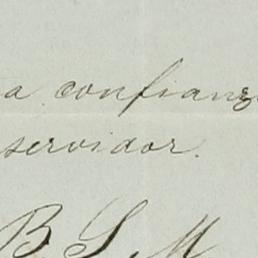 a confianz
servidor.
B S M